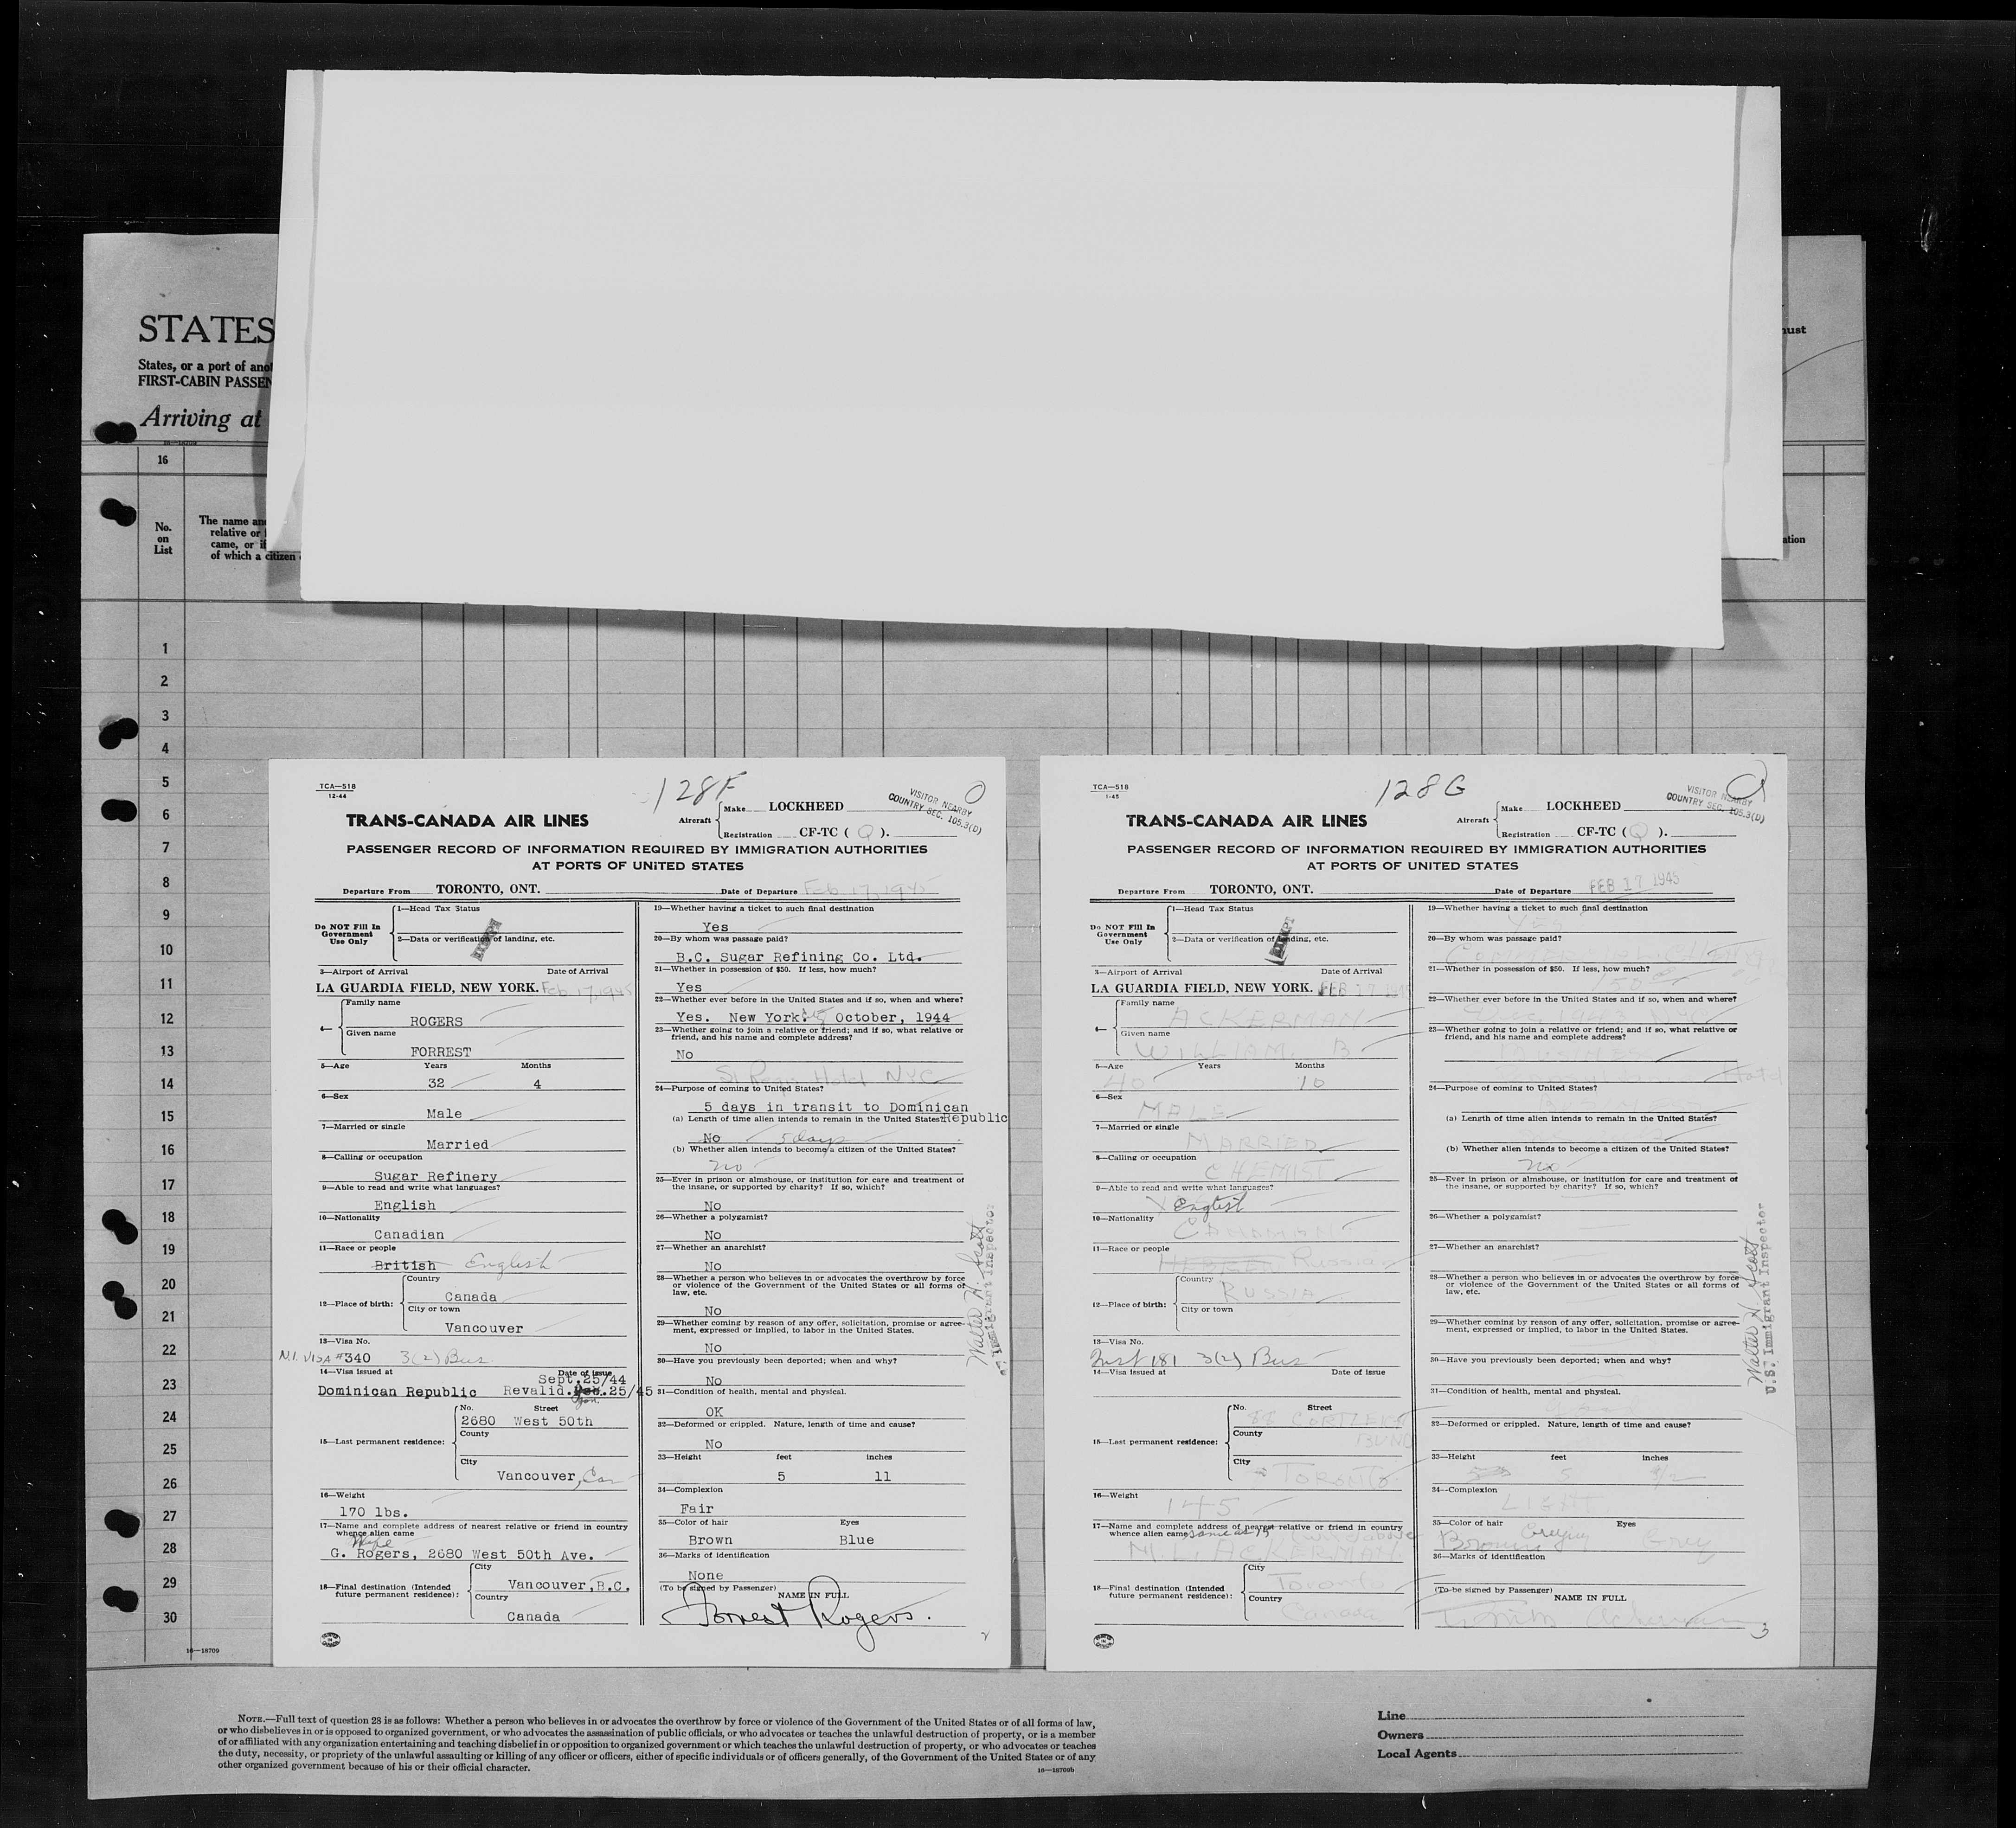 STATES
States, or a port of
FIRST-CABIN
Arriving at
16
No. on List
The name
relative or
came, or if
of which a citizen
1
2
3
4
5
6
7
8
9
10
11
12
13
14
15
16
17
18
19
20
21
22
23
24
25
26
27
28
29
30
16—18709
TCA—518
12-44
128F
VISITOR NEARBY
COUNTRY SEC. 105.3(D)
TRANS-CANADA AIR LINES
Aircraft
Make LOCKHEED
Registration CF-TC ( Q ).
PASSENGER RECORD OF INFORMATION REQUIRED BY IMMIGRATION AUTHORITIES
AT PORTS OF UNITED STATES
Departure From TORONTO, ONT. Date of Departure Feb 17, 1945
Do NOT Fill In Government Use Only
1—Head Tax Status
2—Data or verification of landing, etc.
3—Airport of Arrival Date of Arrival
LA GUARDIA FIELD, NEW YORK. Feb 17, 1945
4—
Family name
ROGERS
Given name
FORREST
5—Age Years Months
32 4
6—Sex
Male
7—Married or single
Married
8—Calling or occupation
Sugar Refinery
9—Able to read and write what languages?
English
10—Nationality
Canadian
11—Race or people
British English
12—Place of birth:
Country
Canada
City or town
Vancouver
13—Visa No.
N.I. VISA #340 3(2) Bus
14—Visa issued at Date of issue
Sept.25/44
Dominican Republic Revalid. Jan. 25/45
15—Last permanent residence:
No. Street
2680 West 50th
County
City
Vancouver, Can
16—Weight
170 lbs.
17—Name and complete address of nearest relative or friend in country
whence alien came
Wife
G. Rogers, 2680 West 50th Ave.
18—Final destination (Intended
future permanent residence):
City
Vancouver, B.C.
Country
Canada
19—Whether having a ticket to such final destination
Yes
20—By whom was passage paid?
B.C. Sugar Refining Co. Ltd.
21—Whether in possession of $50. If less, how much?
Yes
22—Whether ever before in the United States and if so, when and where?
Yes. New York. October, 1944
23—Whether going to join a relative or friend; and if so, what relative or
friend, and his name and complete address?
No
St Regis Hotel NYC
24—Purpose of coming to United States?
5 days in transit to Dominican Republic
(a) Length of time alien intends to remain in the United States?
No 5 days
(b) Whether alien intends to become a citizen of the United States?
no
25—Ever in prison or almshouse, or institution for care and treatment of
the insane, or supported by charity? If so, which?
No
26—Whether a polygamist?
No
27—Whether an anarchist?
No
28—Whether a person who believes in or advocates the overthrow by force
or violence of the Government of the United States or all forms of
law, etc.
No
29—Whether coming by reason of any offer, solicitation, promise or agree-
ment, expressed or implied, to labor in the United States.
No
30—Have you previously been deported; when and why?
No
31—Condition of health, mental and physical.
OK
32—Deformed or crippled. Nature, length of time and cause?
No
33—Height feet inches
5 11
34—Complexion
Fair
35—Color of hair Eyes
Brown Blue
36—Marks of identification
None
(To be signed by Passenger) NAME IN FULL
Forrest Rogers.
2
Walter H. Scott
U.S. Immigrant Inspector
TCA—518
1-45
128G
VISITOR NEARBY
COUNTRY SEC. 105.3(D)
TRANS-CANADA AIR LINES
Aircraft
Make LOCKHEED
Registration CF-TC ( Q ).
PASSENGER RECORD OF INFORMATION REQUIRED BY IMMIGRATION AUTHORITIES
AT PORTS OF UNITED STATES
Departure From TORONTO, ONT. Date of Departure FEB 17 1945
Do NOT Fill In Government Use Only
1—Head Tax Status
2—Data or verification of landing, etc.
3—Airport of Arrival Date of Arrival
LA GUARDIA FIELD, NEW YORK. FEB 17 1945
4—
Family name
ACKERMAN
Given name
WILLIAM. B
5—Age Years Months
40 10
6—Sex
MALE
7—Married or single
MARRIED
8—Calling or occupation
CHEMIST
9—Able to read and write what languages?
English
10—Nationality
CANADIAN
11—Race or people
HEBREW Russian
12—Place of birth:
Country
RUSSIA
City or town
13—Visa No.
181 3(2) Bus
14—Visa issued at Date of issue
15—Last permanent residence:
No. Street
County
City
TORONTO
16—Weight
145
17—Name and complete address of nearest relative or friend in country
whence alien came same as 15
ACKERMAN
18—Final destination (Intended
future permanent residence):
City
Toronto
Country
Canada
19—Whether having a ticket to such final destination
Yes
20—By whom was passage paid?
21—Whether in possession of $50. If less, how much?
22—Whether ever before in the United States and if so, when and where?
1943 NYC
23—Whether going to join a relative or friend; and if so, what relative or
friend, and his name and complete address?
Hotel
24—Purpose of coming to United States?
(a) Length of time alien intends to remain in the United States?
(b) Whether alien intends to become a citizen of the United States?
no
25—Ever in prison or almshouse, or institution for care and treatment of
the insane, or supported by charity? If so, which?
26—Whether a polygamist?
27—Whether an anarchist?
28—Whether a person who believes in or advocates the overthrow by force
or violence of the Government of the United States or all forms of
law, etc.
29—Whether coming by reason of any offer, solicitation, promise or agree-
ment, expressed or implied, to labor in the United States.
30—Have you previously been deported; when and why?
31—Condition of health, mental and physical.
32—Deformed or crippled. Nature, length of time and cause?
33—Height feet inches
5
34—Complexion
LIGHT
35—Color of hair Eyes
Brown Greying Grey
36—Marks of identification
(To be signed by Passenger) NAME IN FULL
Ackerman
3
Walter H. Scott
U.S. Immigrant Inspector
NOTE.—Full text of question 28 is as follows: Whether a person who believes in or advocates the overthrow by force or violence of the Government of the United States or of all forms of law,
or who disbelieves in or is opposed to organized government, or who advocates the assassination of public officials, or who advocates or teaches the unlawful destruction of property, or is a member
of or affiliated with any organization entertaining and teaching disbelief in or opposition to organized government or which teaches the unlawful destruction of property, or who advocates or teaches
the duty, necessity, or propriety of the unlawful assaulting or killing of any officer or officers, either of specific individuals or of officers generally, of the Government of the United States or of any
other organized government because of his or their official character.
16—18709b
Line
Owners
Local Agents